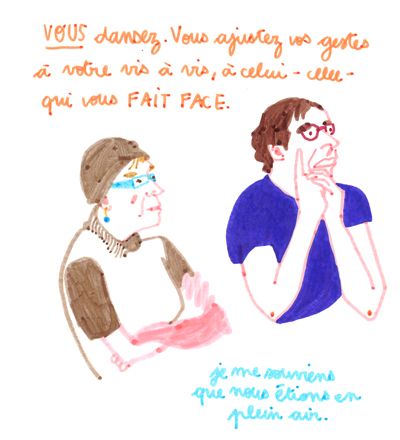 VOUS dansez. Vous ajustez vos gestes
à votre vis à vis, à celui - celle -
qui vous FAIT FACE.
je me souviens
que nous étions en
plein air.